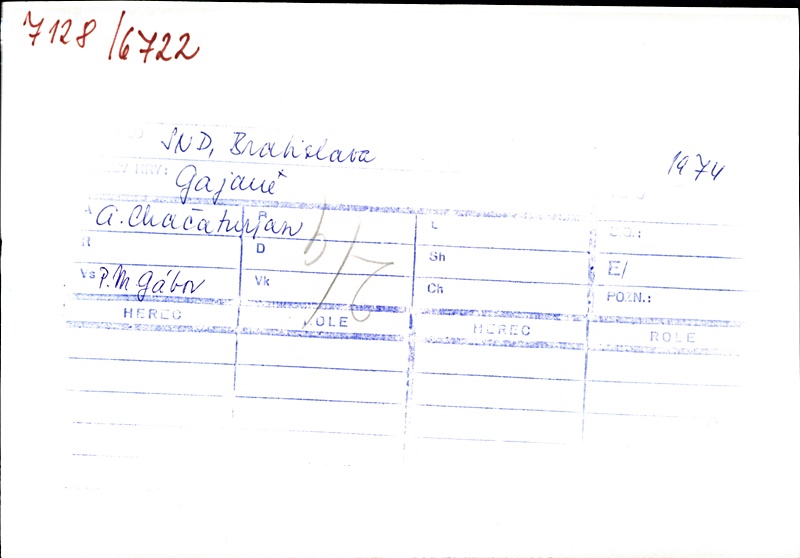 7128/6722
SND, Bratislava
1974
HRY: Gajané
A A. Chačaturjan P L
R D Sh E/
Vs P. M. Gábor Vk Ch POZN.:
HEREC ROLE HEREC ROLE